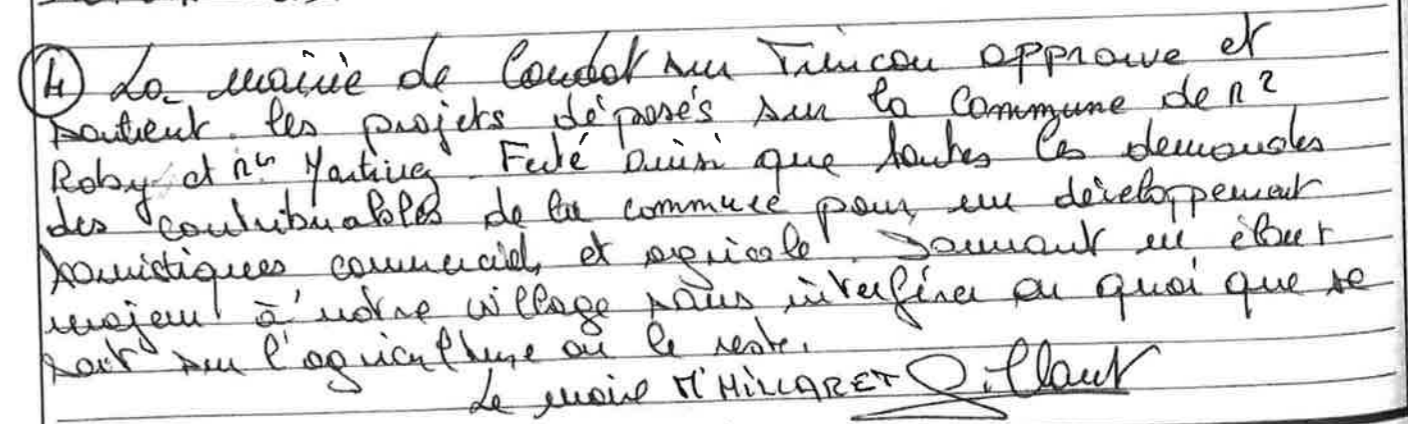 ④ La mairie de Coudol sur Tincou approuve et
soutient les projets déposés sur la Commune de
Roby et Martinez Fedé ainsi que toutes les demandes
des contribuables de la commune pour un développement
touristiques commercial, et agricole. Donnant un
majeur à notre village sans interférer en quoi que se
soit sur l'agriculture ou le reste.
Le maire M' HILLARET